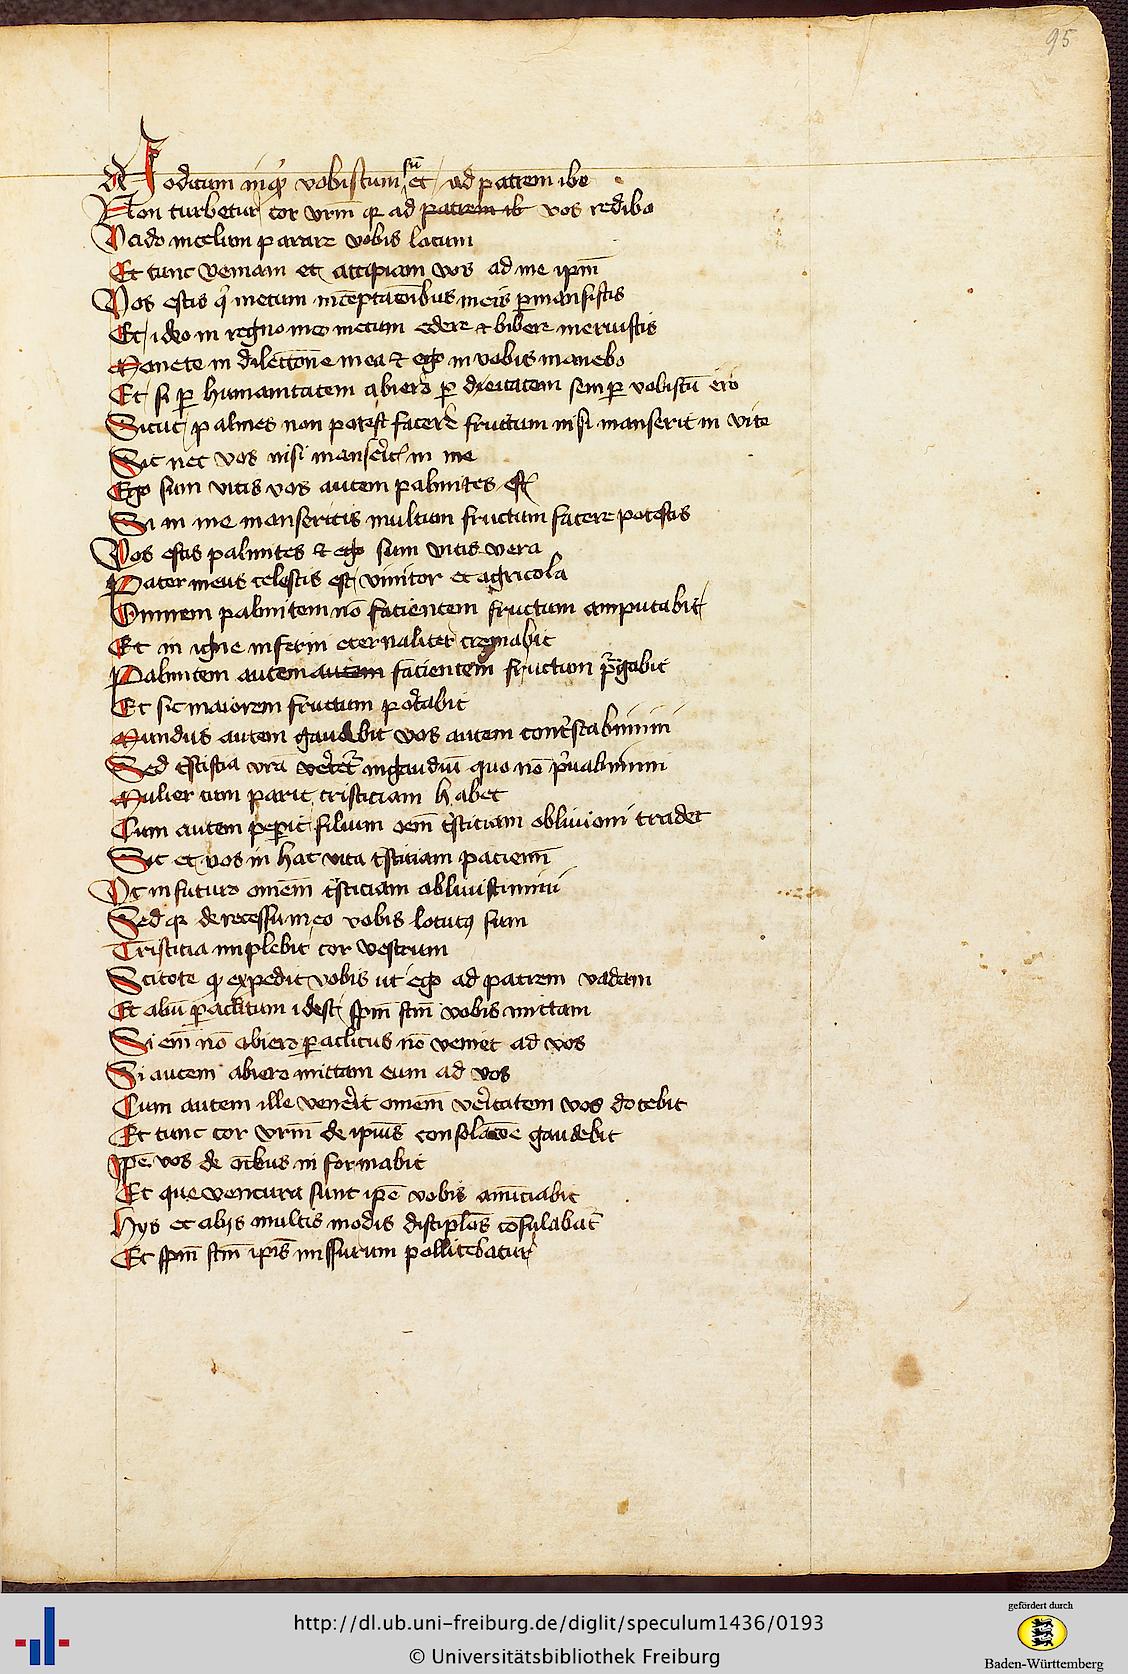 95
Modicum inqͥ vobiscum sū et ad patrem ibo
Non turbetur cor vrm̄ qꝛ ad patrem ib vos redibo
Vado in celum parare vobis locum
Et tunc veniam et accipiam vos ad me ipm̄
Vos estis qͥ mecum in tēptatōnibus meis ꝑmansistis
Et ideo in regno meo mecum edere ⁊ bibere meruistis
Manete in dilectōne mea ⁊ ego in vobis manebo
Et si ꝑ humanitatem abiero ꝑ dieitatem semꝑ vobiscū ero
Sicut palmes non potest facere fructum nisi manserit in vite
Sic nec vos nisi manserit͛ in me
Ego sum vitis vos autem palmites est͛
Si in me manseritis multum fructum facere potestis
Vos estis palmites ⁊ ego sum vitis vera
Pater meus celestis est vinitor et agricola
Omnem palmitem nō facientem fructum amputabit
Et in igne inferni eternaliter cremabit
Palmitem autem autem facientem fructum pͬgabit
Et sic maiorem fructum port͛abit
Mundus autem gaudebit vos autem contͥstabimini
Sed tͥstitia vra vert͛et͛ in gaudiū quo nō pͥuabimini
Mulier cum parit tristiciam habet
Cum autem peperit filium oēm tͥsticiam obliuioni tradet
Sic et vos in hac vita tͥsticiam patiemī
Vt in futuro omnēm tͥsticiam obliuiscimini
Sed qꝛ de recessu meo vobis locutꝯ sum
Tristicia implebit cor vestrum
Scitote qꝫ expedit vobis ut ego ad patrem vadam
Et aliū ꝑaclitum id est spm̄ scm̄ vobis mittam
Si em̄ nō abiero ꝑaclitus nō veniet ad vos
Si autem abiero mittam eum ad vos
Cum autem ille venerit omnēm veritatem vos docebit
Et tunc cor vrm̄ de ipius̄ consolacōe gaudebit
Ipē vos de oībus in formabit
Et que ventura sunt ipē vobis anūciabit
Hys et alijs multis modis disciplōs cōsulabat͛
Et spm̄ scm̄ ipis̄ missurum pollicebatur
http://dl.ub.uni-freiburg.de/diglit/speculum1436/0193
© Universitätsbibliothek Freiburg
gefördert durch
Baden-Württemberg